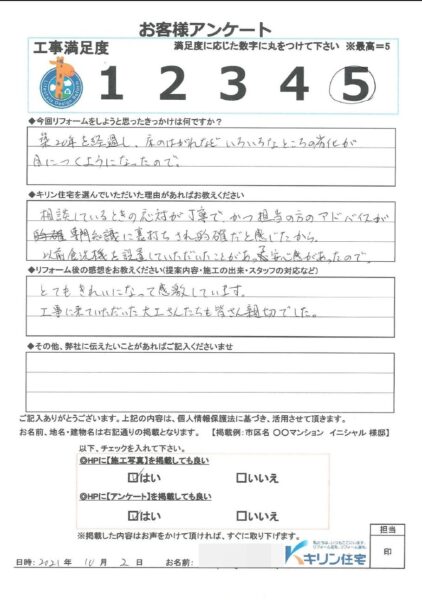 お客様アンケート
工事満足度 満足度に応じた数字に丸をつけて下さい ※最高=5
1 2 3 4 5
◆今回リフォームをしようと思ったきっかけは何ですか?
築20年を経過し、床のはがれなどいろいろなところの劣化が
目につくようになったので。
◆キリン住宅を選んでいただいた理由があればお教えください
相談しているときの応対が丁寧で、かつ担当の方のアドバイスが
専門知識に裏打ちされ的確だと感じたから。
以前食洗機を設置していただいたことがあって安心感があったので。
◆リフォーム後の感想をお教えください(提案内容・施工の出来・スタッフの対応など)
とてもきれいになって感激しています。
工事に来ていただいた大工さんたちも皆さん親切でした。
◆その他、弊社に伝えたいことがあればご記入くださいませ
ご記入ありがとうございます。上記の内容は、個人情報保護法に基づき、活用させて頂きます。
お名前、地名・建物名は右記通りの掲載となります。 【掲載例:市区名 〇〇マンション イニシャル 様邸】
以下、チェックを入れて下さい。
◎HPに【施工写真】を掲載しても良い
☑はい □いいえ
◎HPに【アンケート】を掲載しても良い
☑はい □いいえ
※掲載した内容はお声をかけて頂ければ、すぐに取り下げます。
担当
印
キリン住宅
日時: 2021 年 10 月 2 日 お名前: